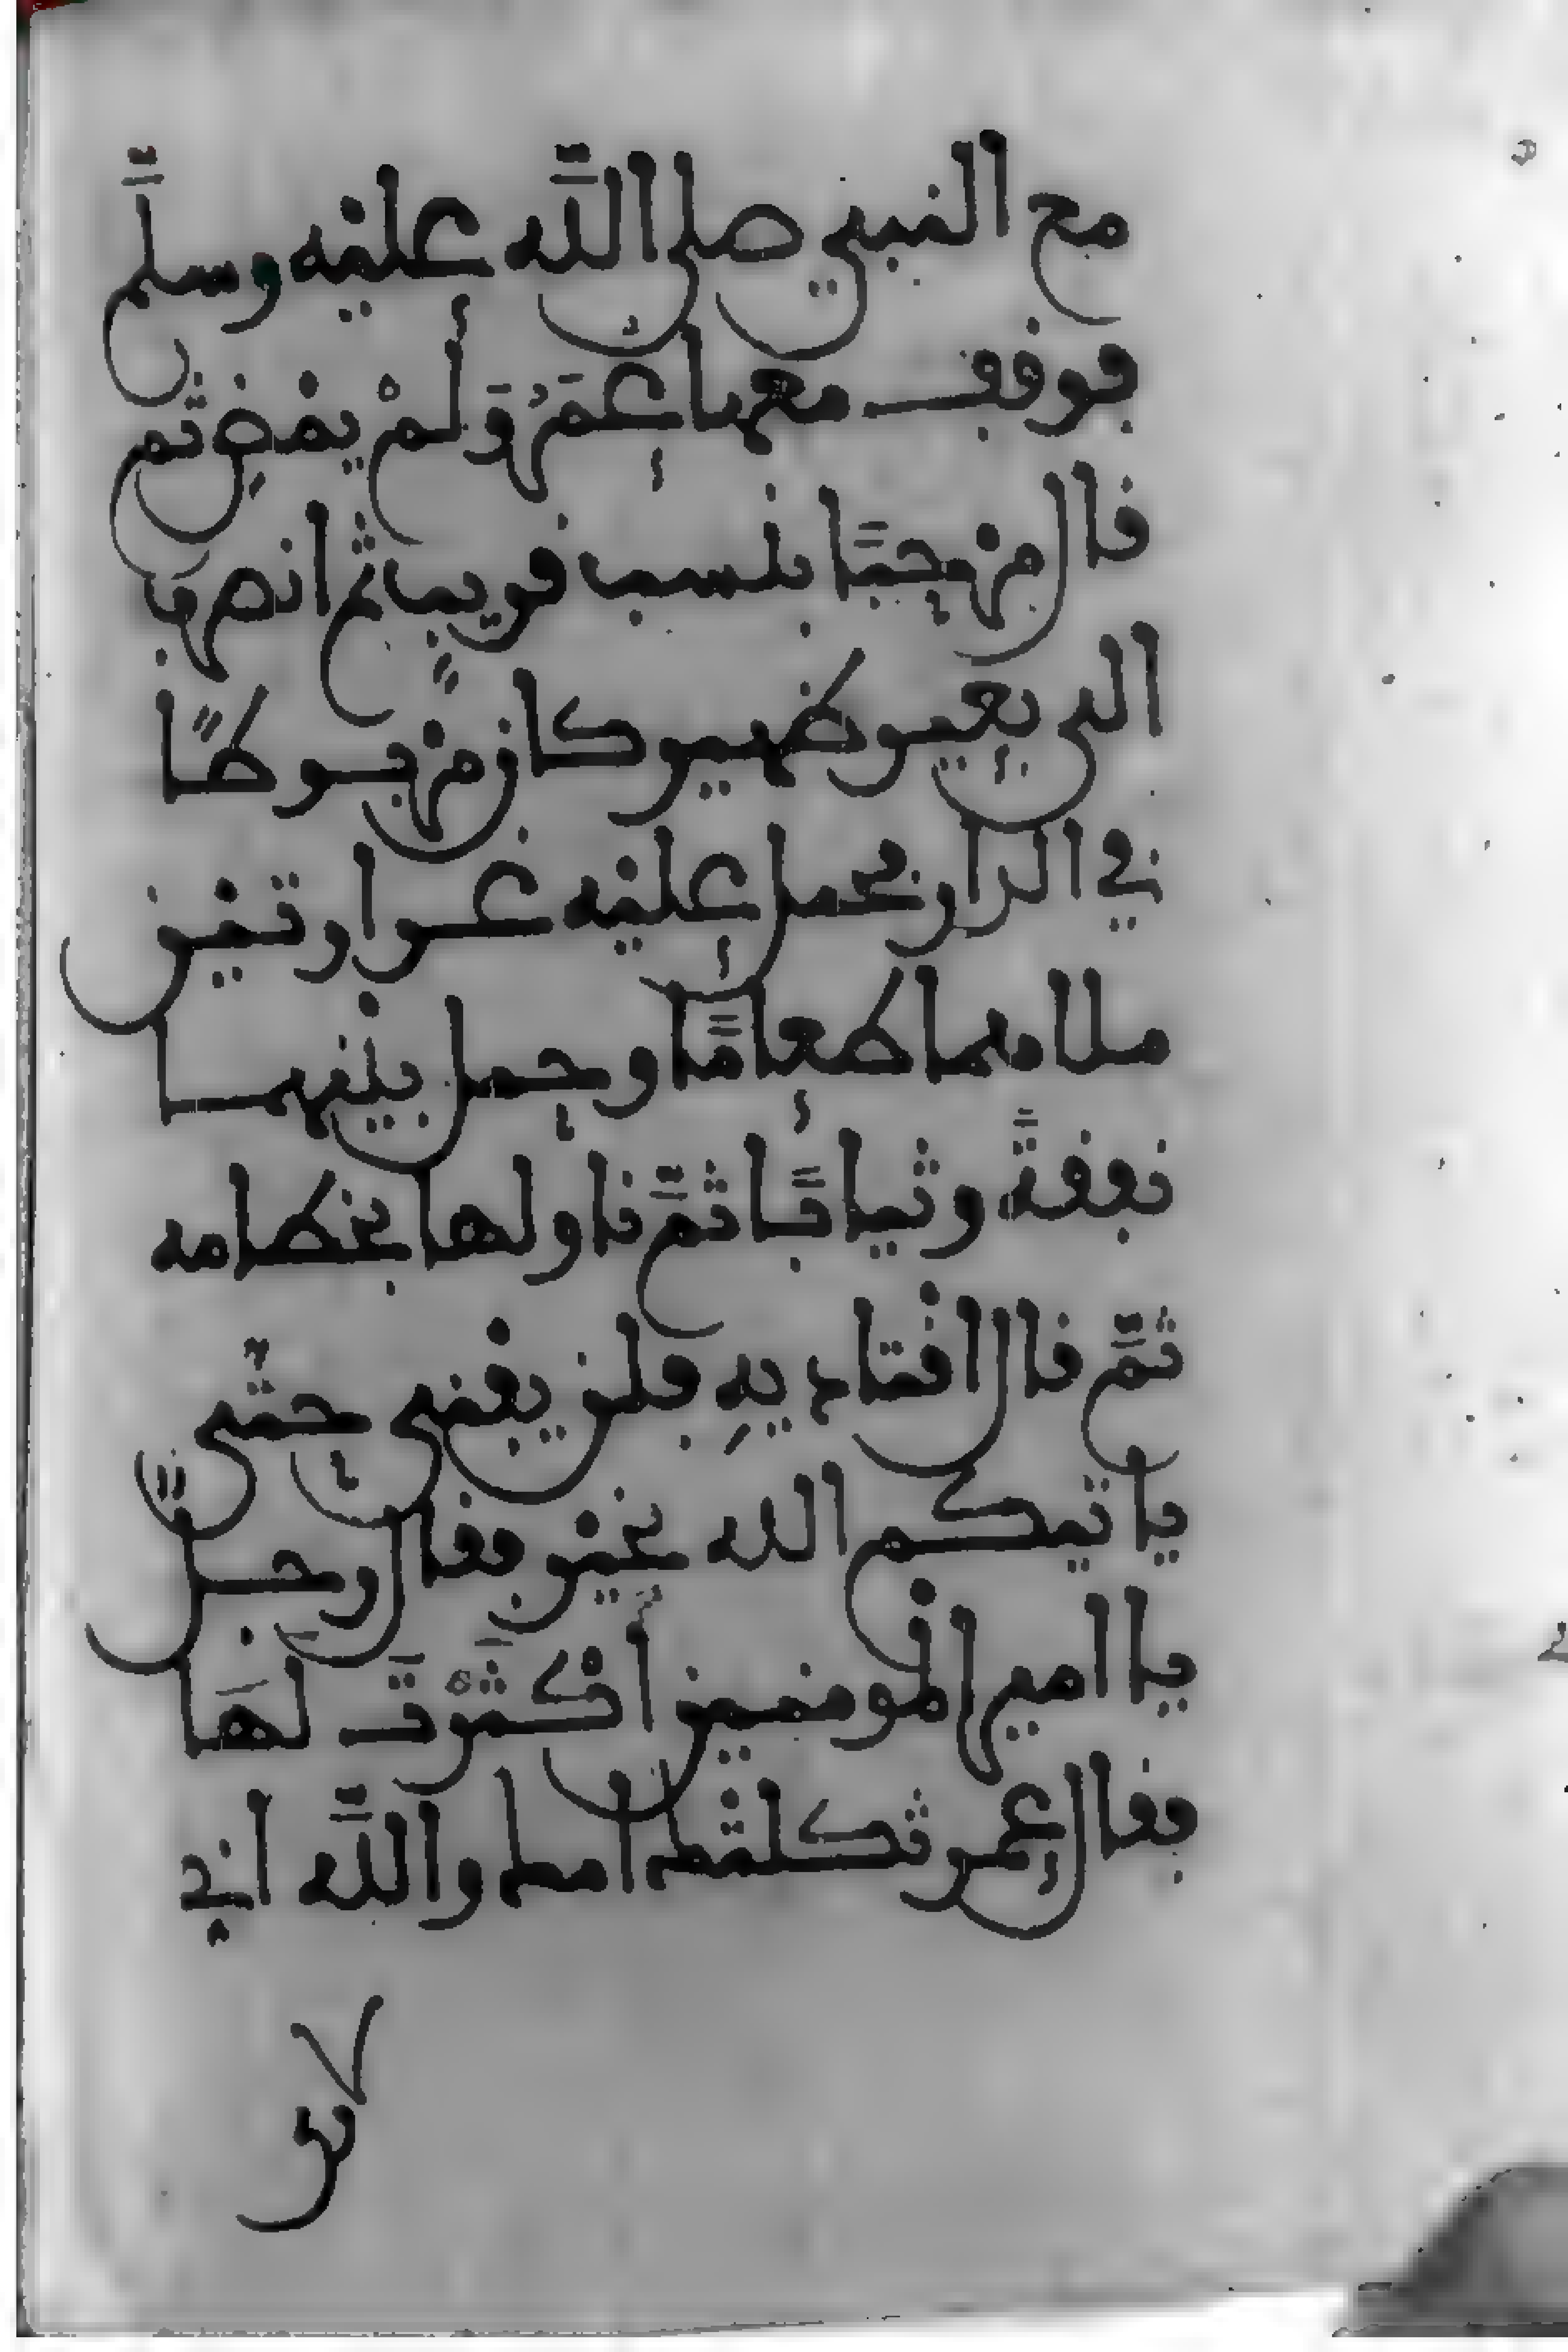 مع النبي صلى اللَّه عليه وسلَّم
فوقف معها عمَرُ وَلمْ يمضِ ثم
قال مرحبًا بنسب قريبٍ ثم انصرف
الى بعير ظهير كان مربوطًا
في الدار فحمل عليه غرارتين
ملاهما طعامًا وحمل بينهما
نفقةً وثيابًا ثمَّ ناولها بخطامه
ثمَّ قال اقتاديهِ فلن يفنى حتَّى
ياتيكم الله بخير فقال رجلٌ
يا امير المومنين أكْثَرْتَ لَهَا
فقال عمر ثكلتك امك واللَّه اني
لارى